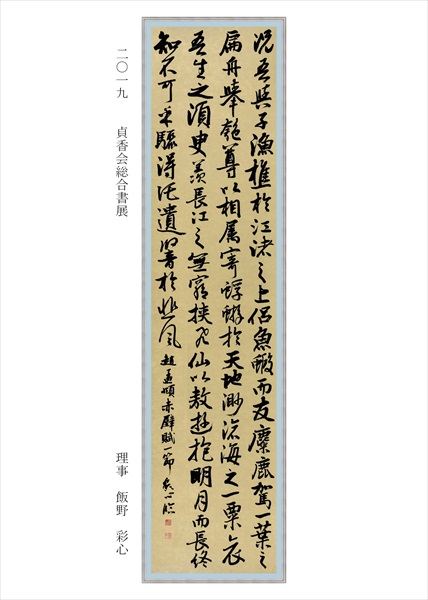 況吾與子漁樵於江渚之上侶魚鰕而友麋鹿駕一葉之
扁舟舉匏尊以相属寄蜉蝣於天地渺滄海之一粟哀
吾生之須臾羨長江之無窮挾飛仙以敖遊抱明月而長終
知不可乎驟得託遺響於悲風 趙孟頫赤壁賦一節 心臨
二〇一九 貞香会総合書展
理事 飯野 彩心